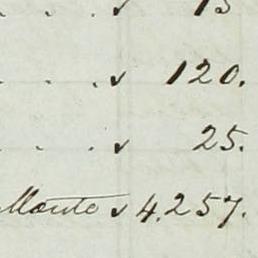 . . . " 13
. . . " 120.
. . . " 25.
Monte " 4,257.